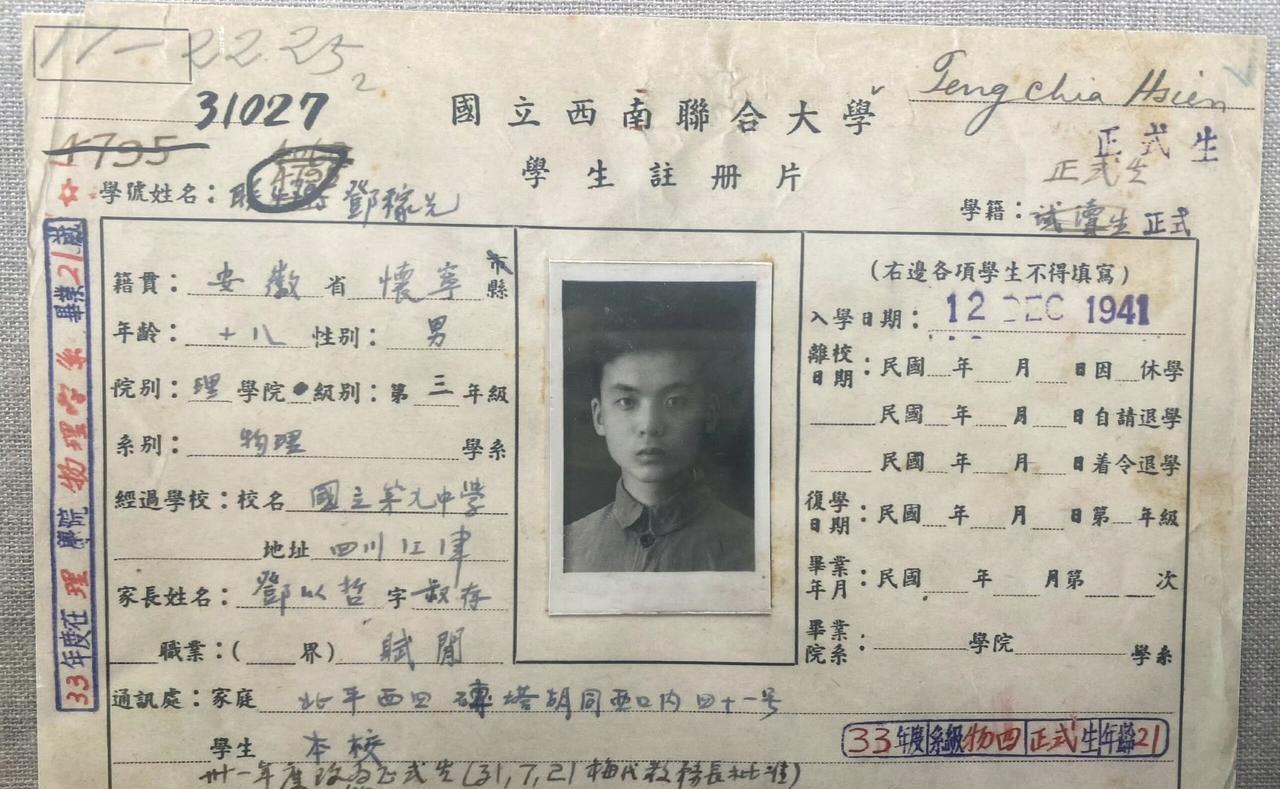 17-22.25
2
31027
國立西南聯合大學
Teng chia Hsien
4795
正式生
學生註册片
正式生
學號姓名：聯 鄧稼先
學籍：試讀生 正式
籍貫：安徽省懷寧縣
年齡：十八 性別：男
院別：理學院 級別：第三年級
系別：物理學系
經過學校：校名 國立第九中學
地址 四川江津
家長姓名：鄧以哲 字 叔存
職業：( 界) 賦閒
通訊處：家庭 北平西四磚塔胡同 内四十一号
學生 本校
卅一年度改為正式生(31,7,21梅代教務長批准)
(右邊各項學生不得填寫)
入學日期：12 DEC 1941
離校日期：民國 年 月 日因 休學
民國 年 月 日自請退學
民國 年 月 日着令退學
復學日期：民國 年 月 日第 年級
畢業年月：民國 年 月第 次
畢業院系：學院 學系
33年度系級物四正式生年齡21
33年度在理學院物理學系畢業21歲